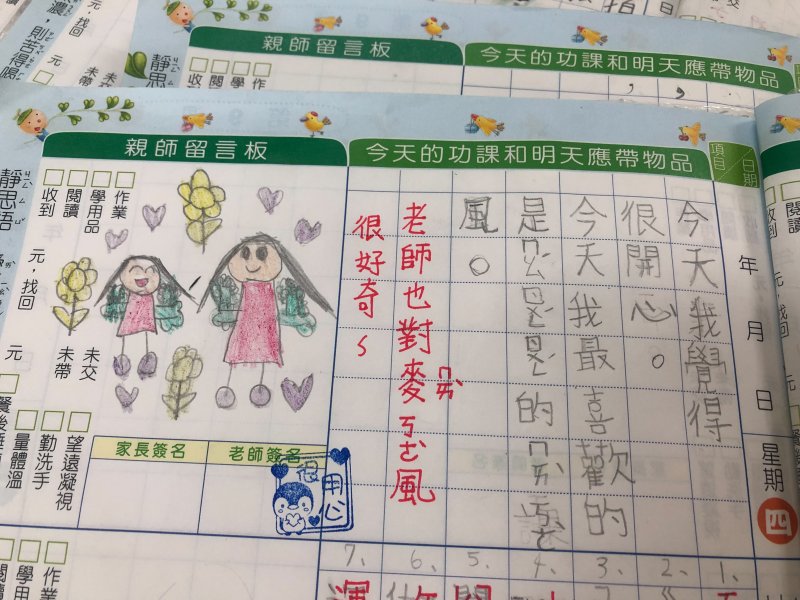 親師留言板
今天的功課和明天應帶物品
靜思
收
閱
學
作
元，找回
未帶
未交
濃，則苦得
親師留言板
今天的功課和明天應帶物品
項目
日期
年
月
日
星期
四
今天我覺得
很開心。
今天我最喜歡的
是
的ㄇㄞˋㄎㄜ
風。
老師也對麥ㄇㄞˋㄎㄜ風
很好奇～
作業
學用品
閱讀
收到
靜思語
元，找回
元
未交
未帶
望遠凝視
勤洗手
量體溫
家長簽名
老師簽名
很用心
1、
2、
3、
4、
5、
6、
7、
作業
學用